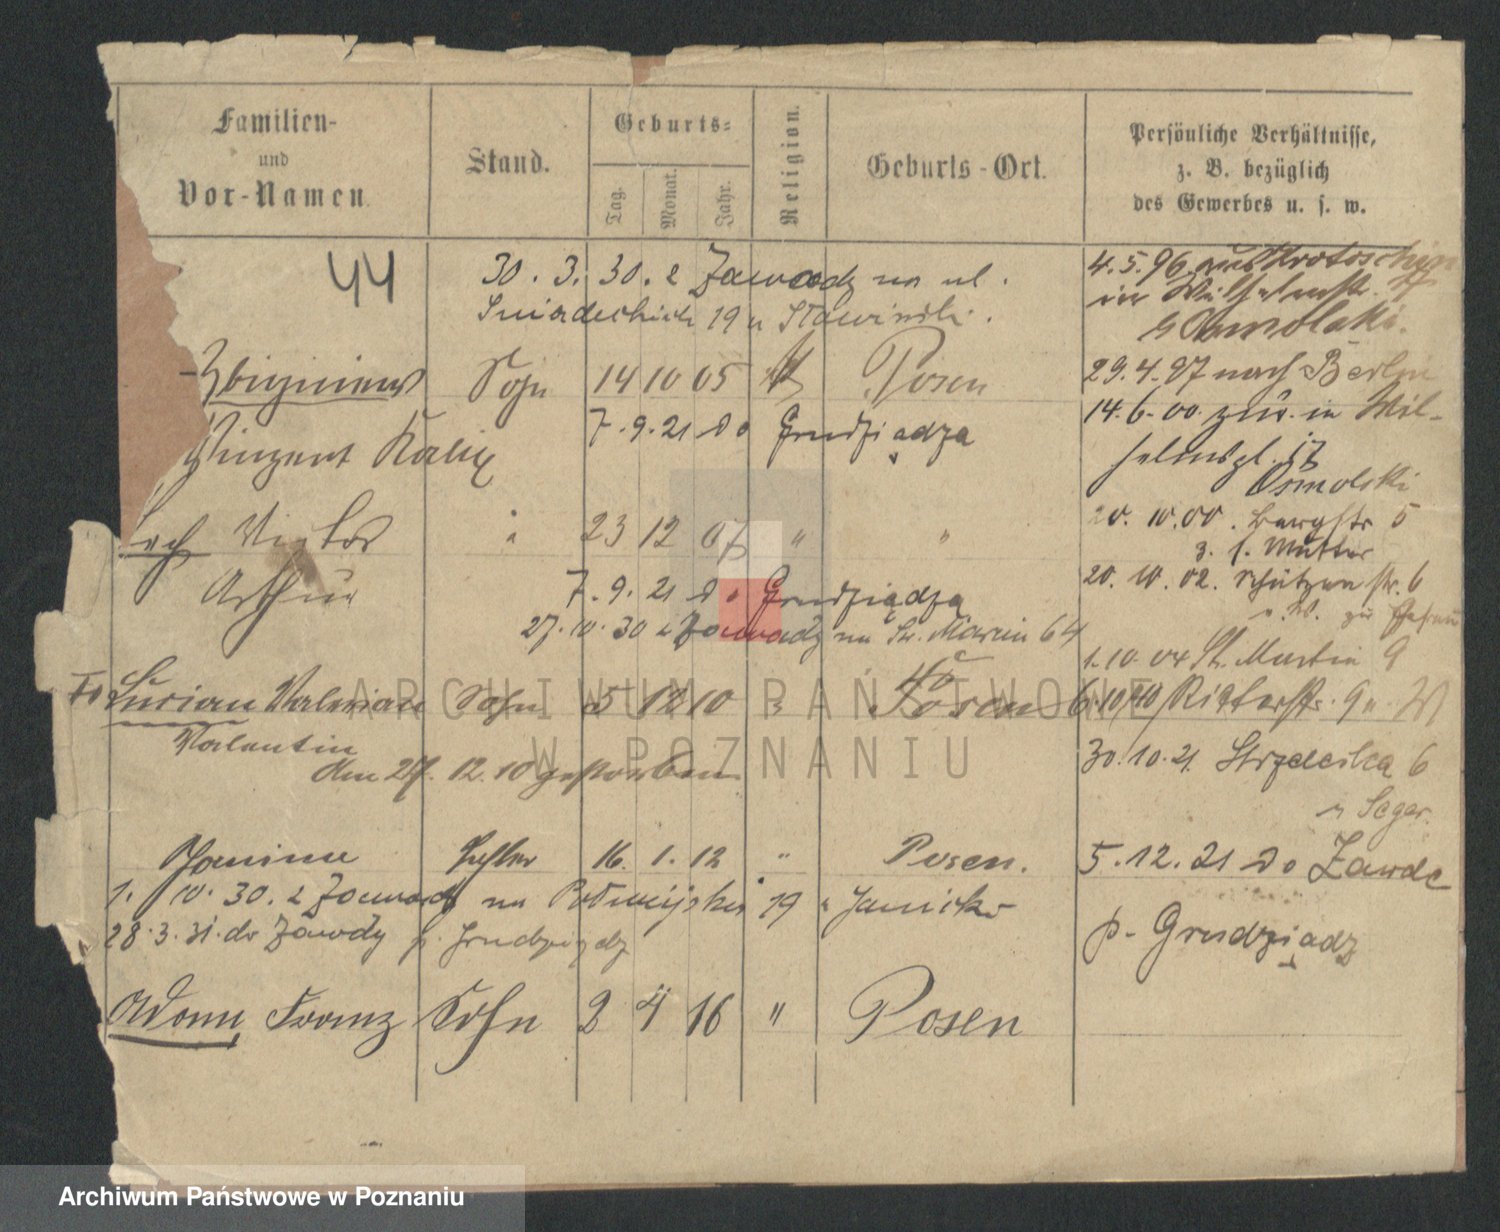 Familien-
und
Vor-Namen.
Stand.
Geburts-
Tag.
Monat.
Jahr.
Religion.
Geburts-Ort.
Persönliche Verhältnisse,
z. B. bezüglich
des Gewerbes u. s. w.
44
30. 3. 30. z Zawad na ul.
Śniadeckich 19 u
4.5.96 aus Krotoschin
in Wilhelmstr.
Osmolski.
Zbigniew Sohn 14 10 05 Posen
29.4.97 nach Berlin
7.9.21 do Grudziądza
14.6.00 zur. in Wil-
Vinzent
helmspl. 17
Osmolski
Lech Victor " 23 12 07 " "
20. 10.00. Bergstr 5
z. s. Mutter
Arthur
7.9.21 do Grudziądza
20. 10. 02. Schützenstr. 6
27.10.30 z Zawady na Św. Marcin 64
1.10.04 St. Martin 9
Lucian Valerian Sohn 5 12 10 " Posen
6.10.10 Ritterstr. 9
Valentin
den 27. 12. 10 gestorben
30.10.21. Strzelecka 6
u Seger.
Janina Tochter 16. 1. 12 " Posen.
5.12.21 do Zawde
1. 10. 30. z Zawad na 19 u
p. Grudziądz
28.3.31. do Zawdy p. Grudziądz
Adam Franz Sohn 2 4 16 " Posen
ARCHIWUM PAŃSTWOWE
W POZNANIU
Archiwum Państwowe w Poznaniu